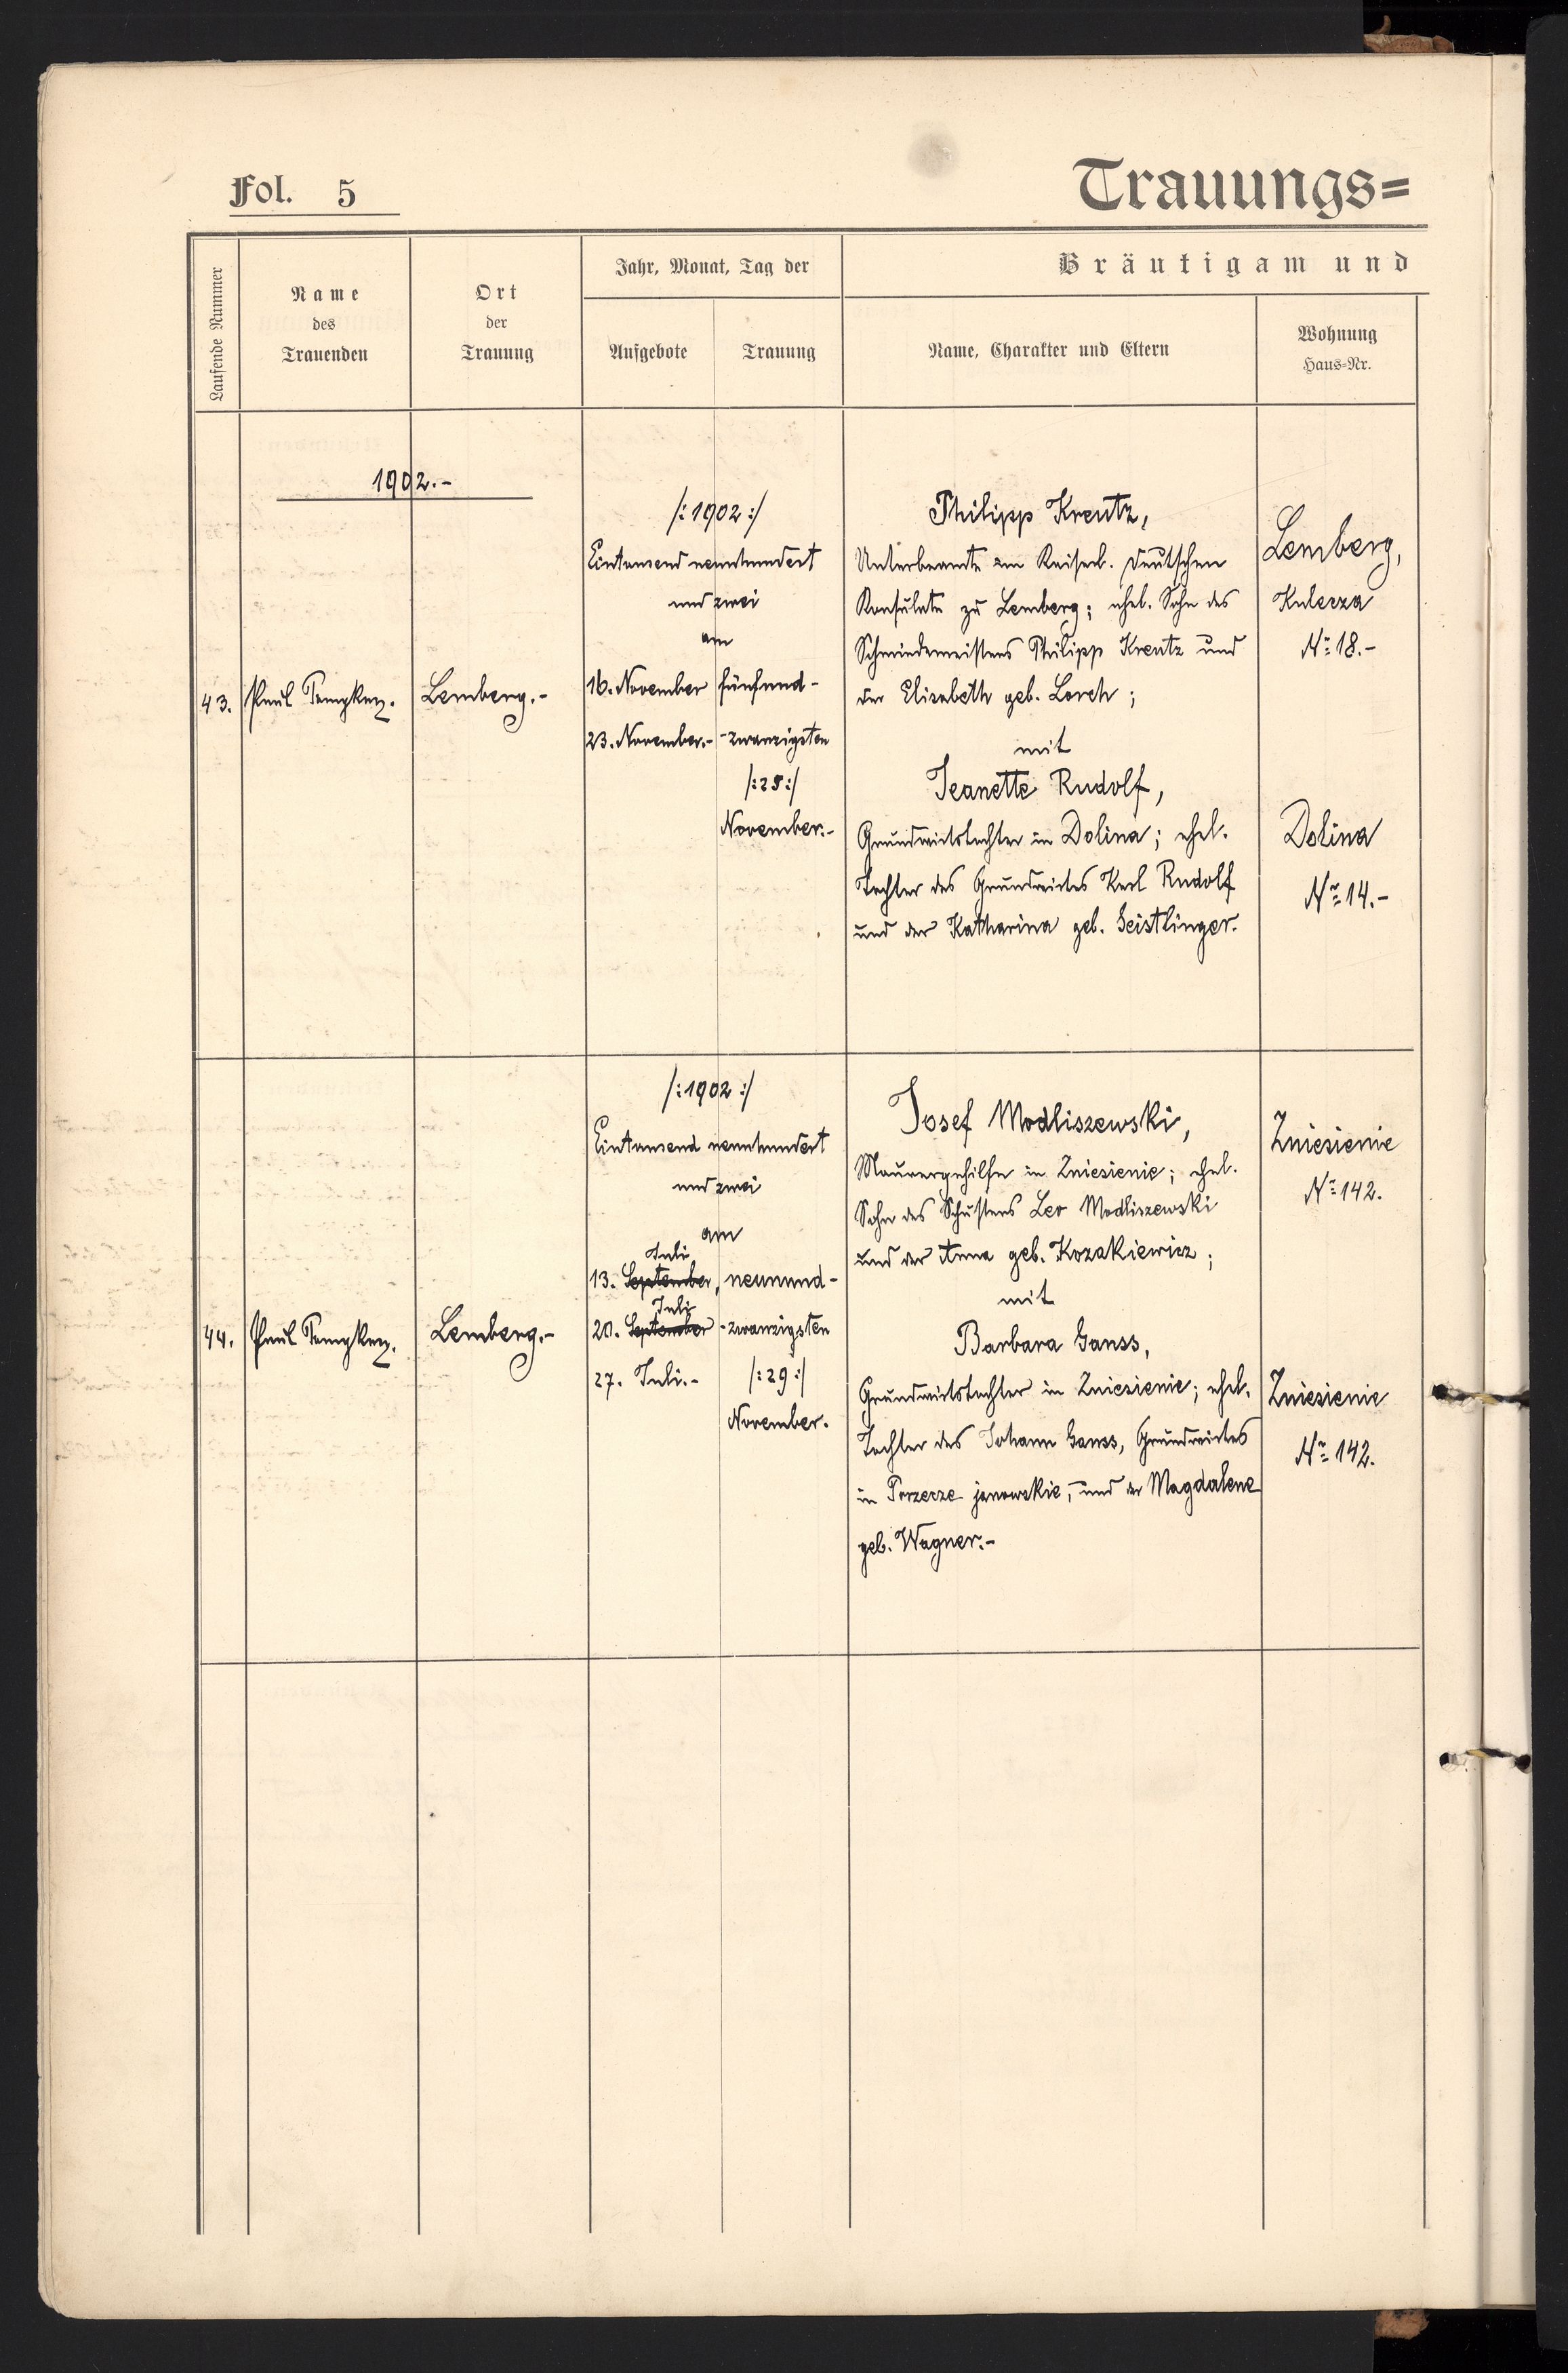 Fol. 5
Trauungs=
Laufende Nummer
Name
des
Trauenden
Ort
der
Trauung
Jahr, Monat, Tag der
Aufgebote
Trauung
Bräutigam und
Name, Charakter und Eltern
Wohnung
Haus=Nr.
1902.-
43.
Paul
Lemberg.-
/:1902:/
Eintausend neunhundert
und zwei
am
16. November
23. November.-
fünfund-
-zwanzigsten
/:25:/
November.-
Philipp Kreutz,
Unterbeamte am Kaiserl. Deutschen
Konsulate zu Lemberg; ehel. Sohn des
Schmiedemeisters Philipp Kreutz und
der Elisabeth geb. Lorch;
mit
Jeanette Rudolf,
Grundwirtstochter in Dolina; ehel.
Tochter des Grundwirtes Karl Rudolf
und der Katharina geb. Geistlinger.
Lemberg,
No 18.-
Dolina
No 14.-
44.
Paul
Lemberg.-
/:1902:/
Eintausend neunhundert
und zwei
am
Juli
13. September,
Juli
20. September
27. Juli.-
neunund-
-zwanzigsten
/:29:/
November.
Josef Modliszewski,
Maurergehilfe in Zniesienie; ehel.
Sohn des Schusters Leo Modliszewski
und der Anna geb. Kozakiewicz;
mit
Barbara Ganss,
Grundwirtstochter in Zniesienie; ehel.
Tochter des Johann Ganss, Grundwirtes
in janowskie, und der Magdalene
geb. Wagner.-
Zniesienie
No 142.
Zniesienie
No 142.